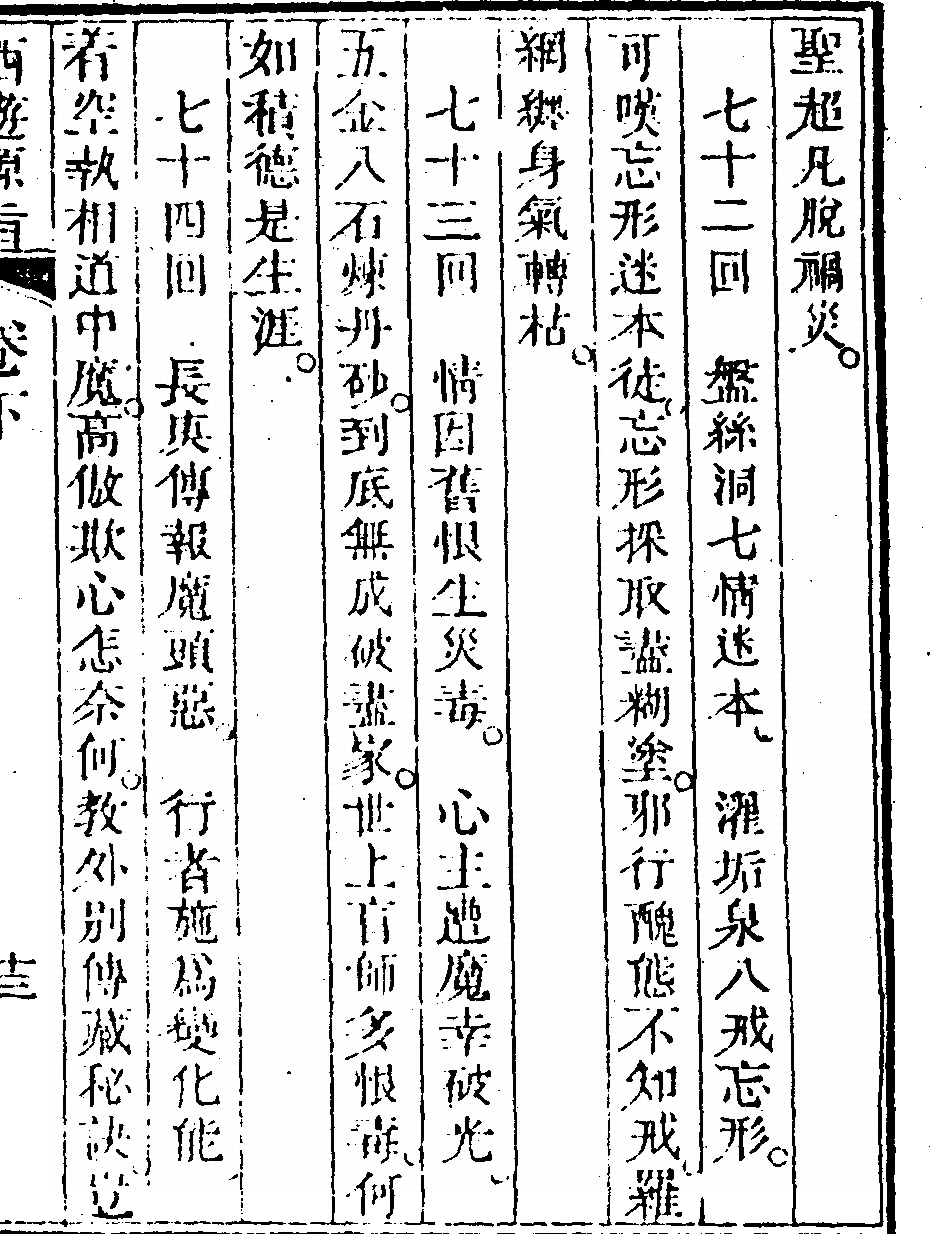 聖超凡脫禍災。
七十二回　盤絲洞七情迷本、　濯垢泉八戒忘形。
可嘆忘形迷本徒、忘形採取盡糊塗。邪行醜態不知戒、羅
網纏身氣轉枯。
七十三回　情因舊恨生災毒。　心主遭魔幸破光、
五金八石煉丹砂。到底無成破盡家。世上盲師多恨毒、何
如積德是生涯。
七十四回　長庚傳報魔頭惡、　行者施爲變化能、
着空執相道中魔。高傲欺心怎奈何。教外別傳藏秘訣、
西遊原旨　卷下